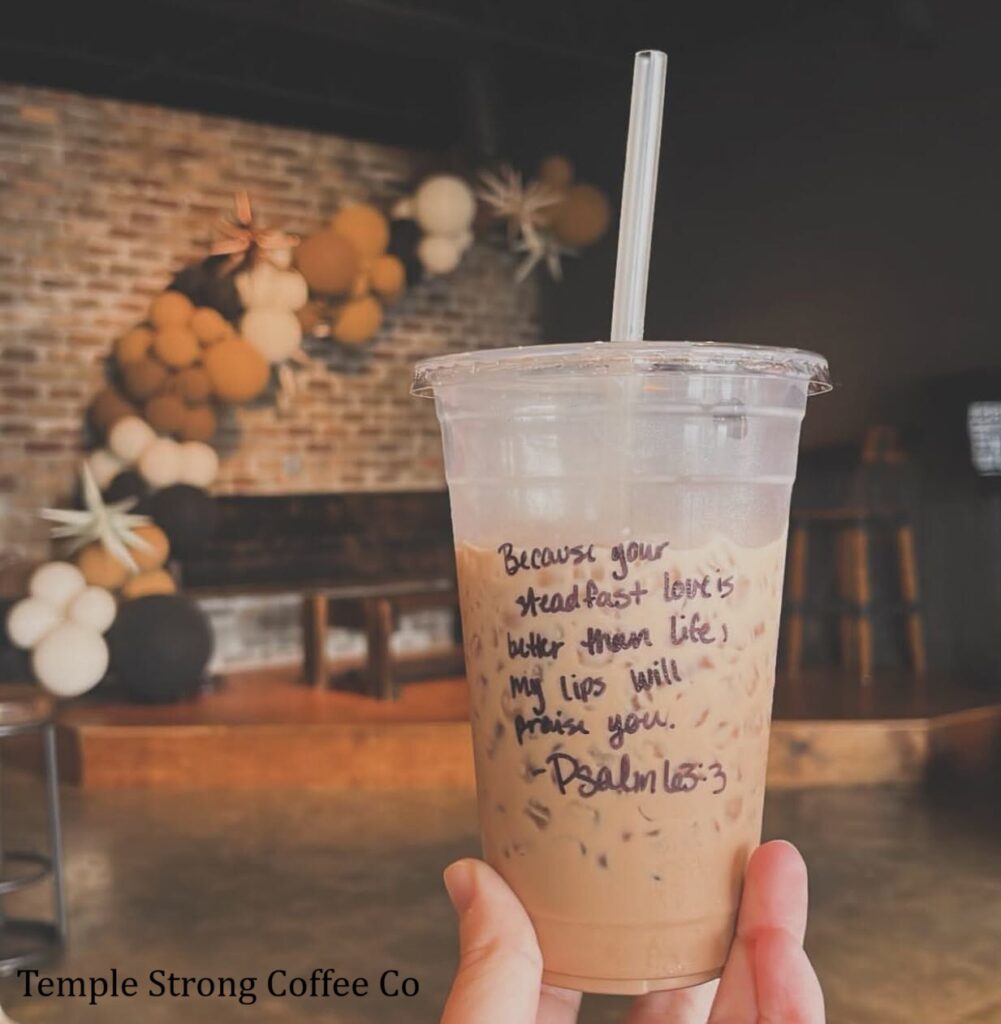 Because your
steadfast love is
better than life,
my lips will
praise you.
-Psalm 63:3
Temple Strong Coffee Co